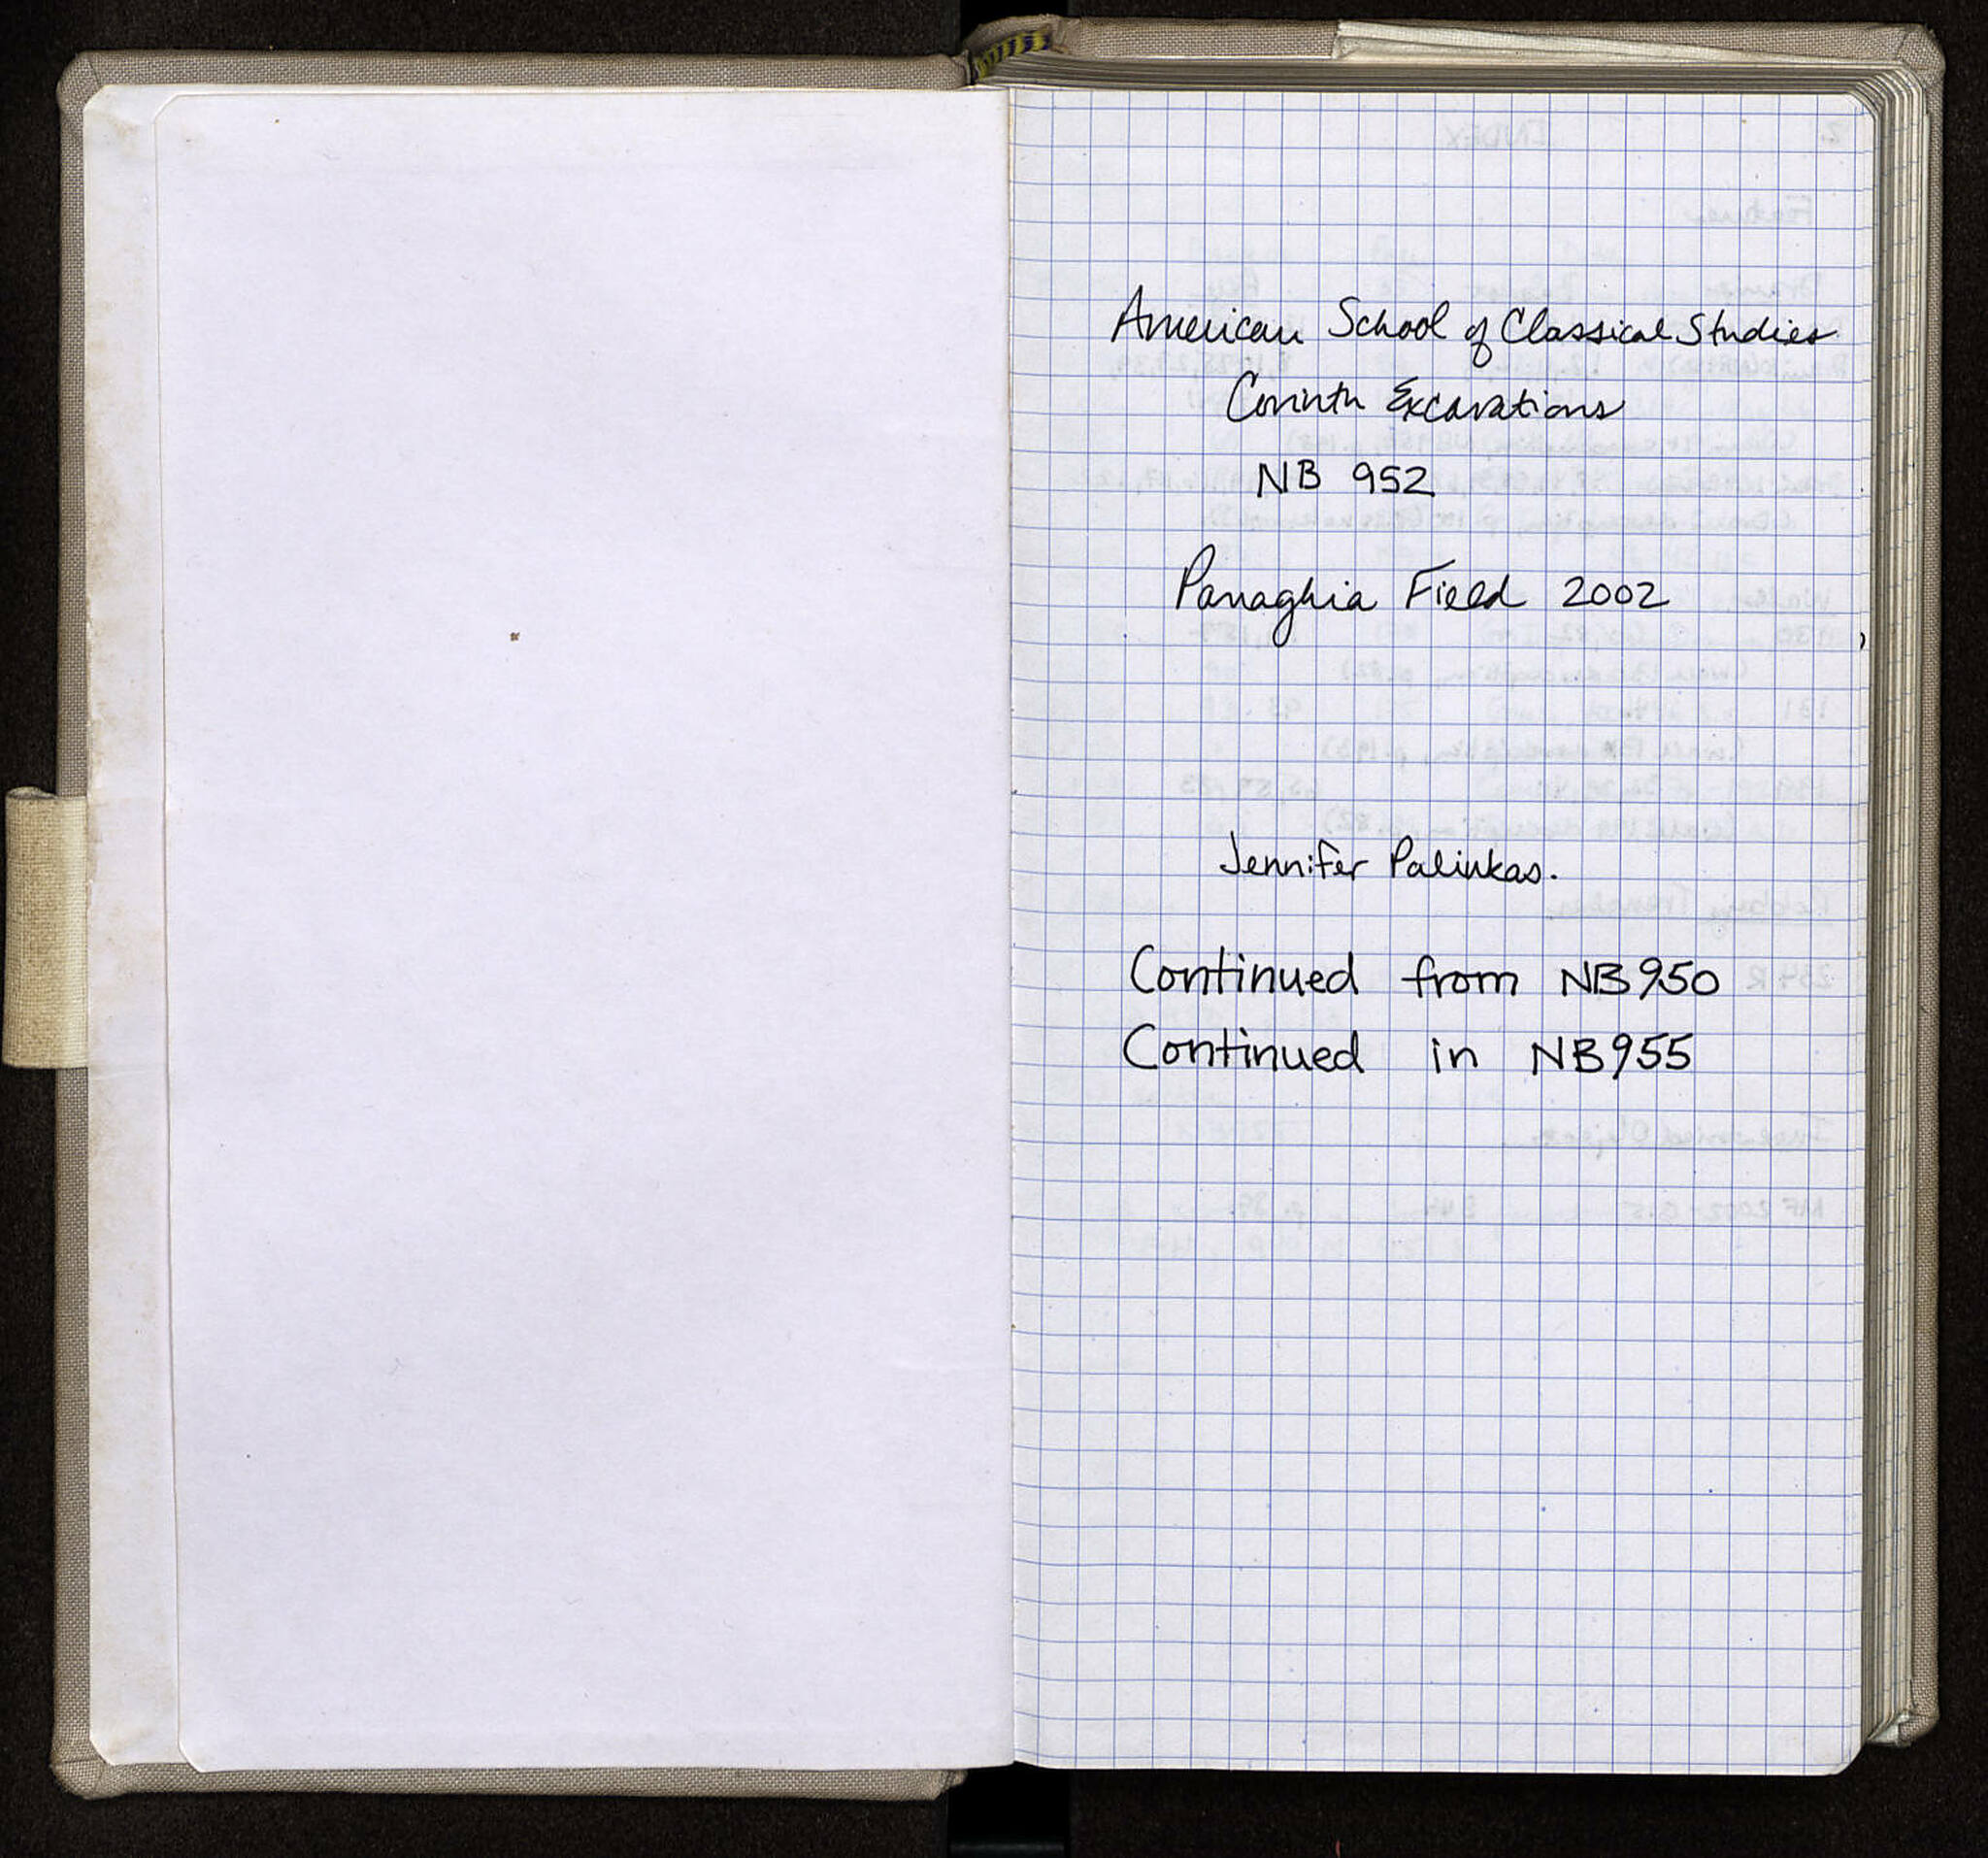 American School of Classical Studies
Corinth Excavations
NB 952
Panaghia Field 2002
Jennifer Palinkas.
Continued from NB950
Continued in NB955